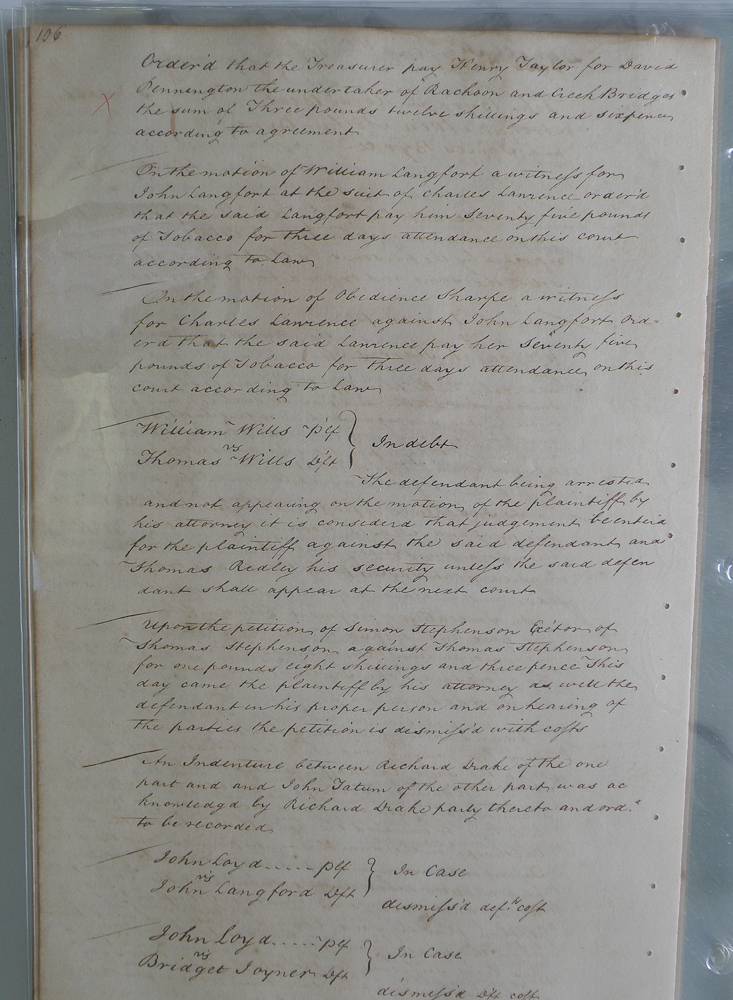 106
Order'd that the Treasurer pay Henry Taylor for David
Pennington the undertaker of Rachoon and Creek Bridges
the sum of Three pounds twelve shillings and sixpence
according to agreement
On the motion of William Langfort a witness for
John Langfort at the suit of Charles Lawrence order'd
that the said Langfort pay him Seventy five pounds
of Tobacco for three days attendance on this court
according to Law
On the motion of Obedience Sharpe a witness
for Charles Lawrence against John Langfort Ord-
erd that the said Lawrence pay her Seventy five
pounds of Tobacco for three days attendance on this
court according to Law
William Wills Plf
vs
In debt
Thomas Wills Dft
The defendant being arrested
and not appearing on the motion of the plaintiff by
his attorney it is considerd that judgement be enterd
for the plaintiff against the said defendant and
Thomas Redley his security unless the said defen
dant shall appear at the next court
Upon the petition of Simon Stephenson Exẽtor of
Thomas Stephenson against Thomas Stephenson
for one pounds eight shillings and three pence This
day came the plaintiff by his attorney as well the
defendant in his proper person and on hearing of
the parties the petition is dismiss'd with costs
An Indenture between Richard Drake of the one
part and and John Tatum of the other part was ac
knowledgd by Richard Drake party thereto and ord.d
to be recorded
John Loyd ..... plf
vs
In Case
John Langford Dft
dismess'd def.ts cost
John Loyd ..... plf
vs
In Case
Bridget Joyner Dft
dismess'd Dft cost